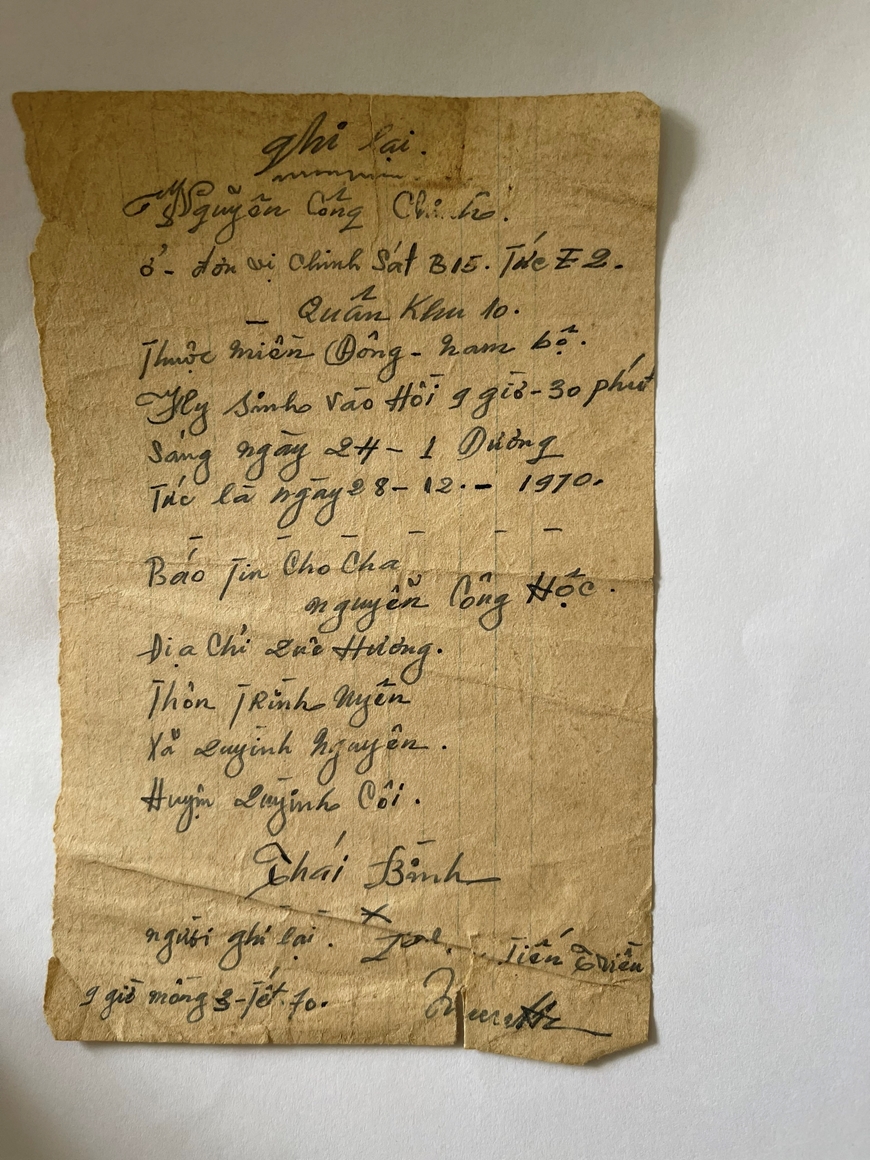 ghi lại.
Nguyễn Công
ở - đơn vị Chinh Sát B15. Tức E2.
- Quân Khu 10.
Thuộc miền Đông - Nam bộ.
Hy Sinh vào Hồi 9 giờ - 30 phút
Sáng ngày 24 - 1 Dương
Tức là ngày 28 - 12 - 1970.
Báo Tin Cho Cha
nguyễn Công Hộc.
Địa Chỉ Quê Hương.
Thôn TRình Uyên
Xã Quỳnh Nguyên.
Huyện Quỳnh Côi.
Thái Bình
người ghi lại. Tiến
9 giờ mồng 3 - Tết 70.